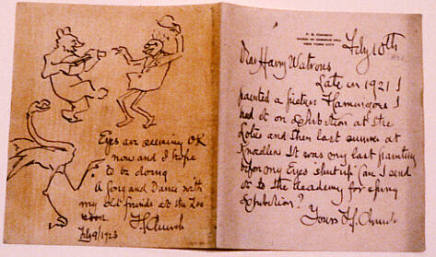 Eyes are seeming OK
now and I hope
to be doing
A Song and Dance with
my old friends at the Zoo
soon.
F.S. Church
Feb 9/1923
F. S. CHURCH
NEW YORK CITY
Feby 10th
Dear Harry Watrous
Late in 1921 I
painted a picture Flamingoes I
had it on exhibition at the
Lotos and then last summer at
Knoedlers It was my last painting
before my Eyes shut up Can I send
it to the Academy for spring
Exhibition?
Yours F.S. Church